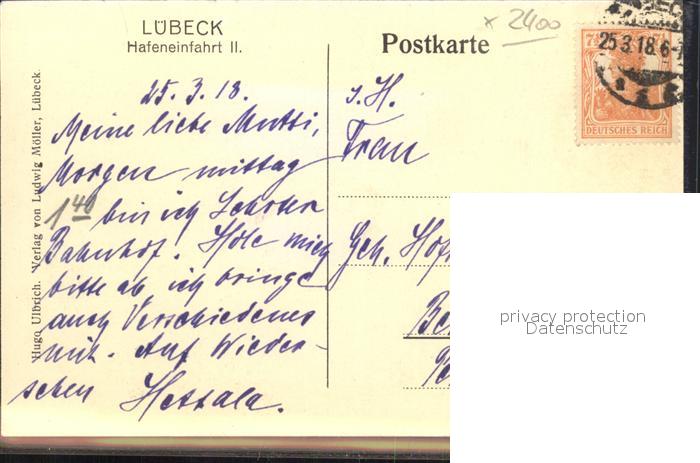 LÜBECK
Hafeneinfahrt II.
× 2400
Postkarte
25.3.18.6-7
7½
DEUTSCHES REICH
Hugo Ulbrich. Verlag von Ludwig Möller, Lübeck.
25. 3. 18.
Meine liebe Mutti,
Morgen mittag
1 40 bin ich Lehrter
Bahnhof. Hole mich
bitte ab ich bringe
auch Verschiedenes
mit. Auf Wieder-
sehen
s. H.
Frau
Geh.
privacy protection
Datenschutz